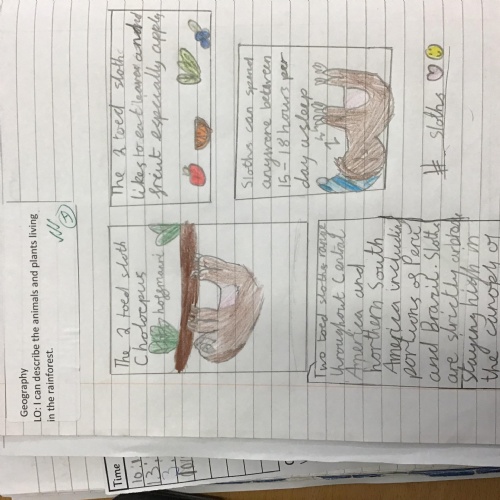 Geography
LO: I can describe the animals and plants living
in the rainforest.
The 2 toed sloth
Choloepus
hoffmanni
The 2 toed sloth
likes to eat leaves and
fruit especially apply
Two toed sloths range
throughout Central
America and
northern South
America including
portions of Peru
and Brazil. Sloths
are strictly
staying high in
the canopy of
Sloths can spend
anywhere between
15-18 hours per
day asleep
# sloths
Time